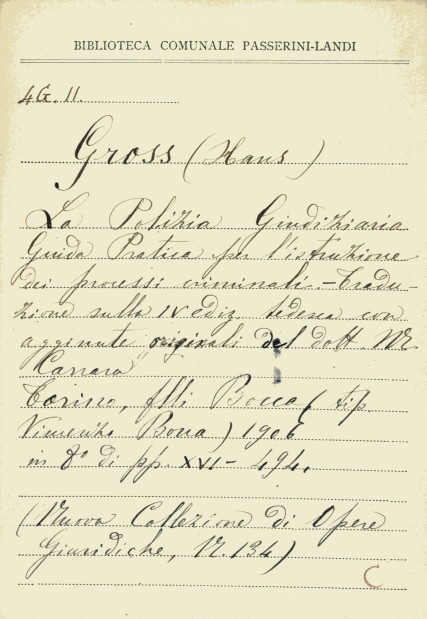 BIBLIOTECA COMUNALE PASSERINI-LANDI
4G. 11.
Gross (Hans)
La Polizia Giudiziaria
Guida Pratica per l'istruzione
dei processi criminali. - Tradu-
zione sulla IV ediz. tedesca con
aggiunte originali del dott. M
Carrara
Torino, flli Bocca (tip.
Vincenzo Bona) 1906
in 8º di pp. XVI - 494.
(Nuova Collezione di Opere
Giuridiche, N. 134)
C